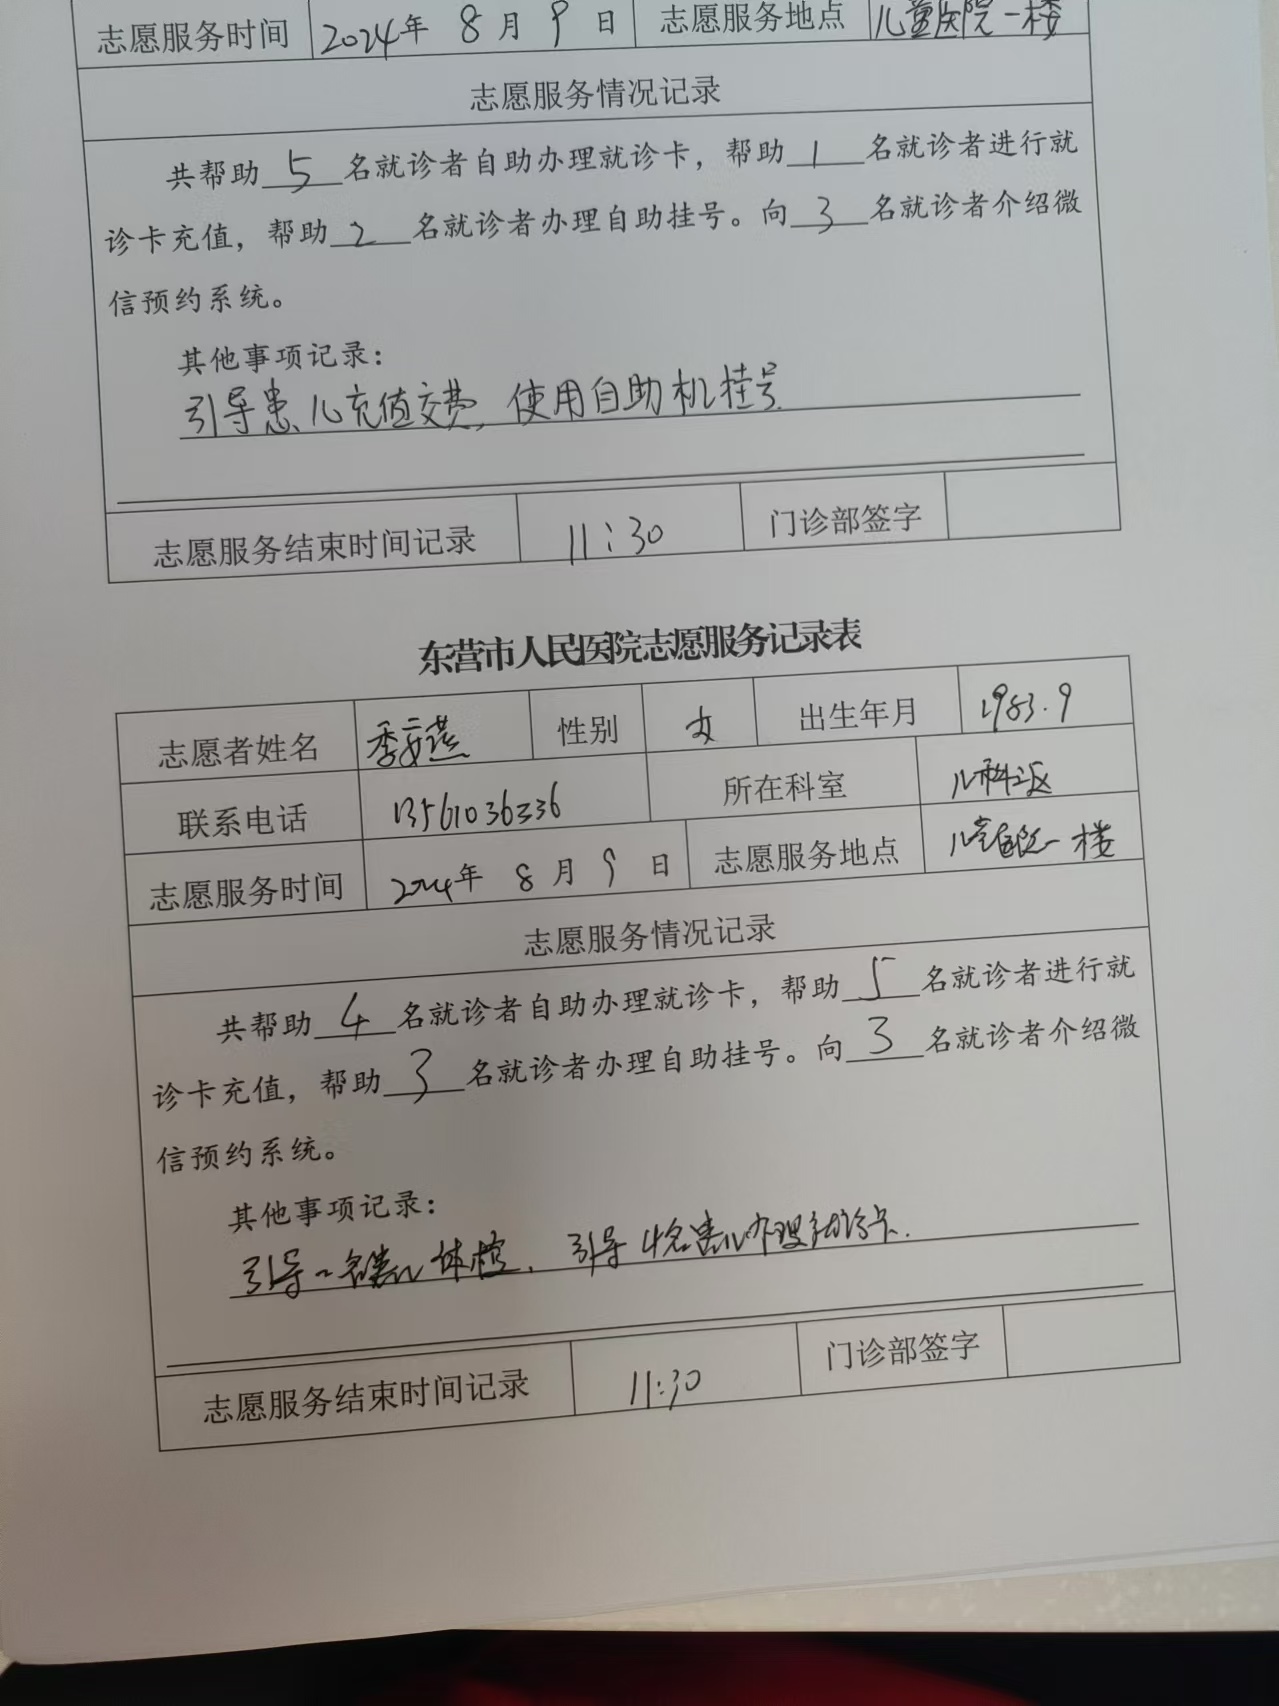 志愿服务时间 2024年 8 月 9 日 志愿服务地点 儿童医院一楼
志愿服务情况记录
共帮助 5 名就诊者自助办理就诊卡，帮助 1 名就诊者进行就
诊卡充值，帮助 2 名就诊者办理自助挂号。向 3 名就诊者介绍微
信预约系统。
其他事项记录：
引导患儿充值交费，使用自助机挂号
志愿服务结束时间记录 11:30 门诊部签字
东营市人民医院志愿服务记录表
志愿者姓名 季 性别 女 出生年月 1983.9
联系电话 13561036336 所在科室 儿科二区
志愿服务时间 2024年 8 月 9 日 志愿服务地点 儿童医院一楼
志愿服务情况记录
共帮助 4 名就诊者自助办理就诊卡，帮助 5 名就诊者进行就
诊卡充值，帮助 3 名就诊者办理自助挂号。向 3 名就诊者介绍微
信预约系统。
其他事项记录：
引导一名患儿体检，引导4名患儿办理就诊卡.
志愿服务结束时间记录 11:30 门诊部签字